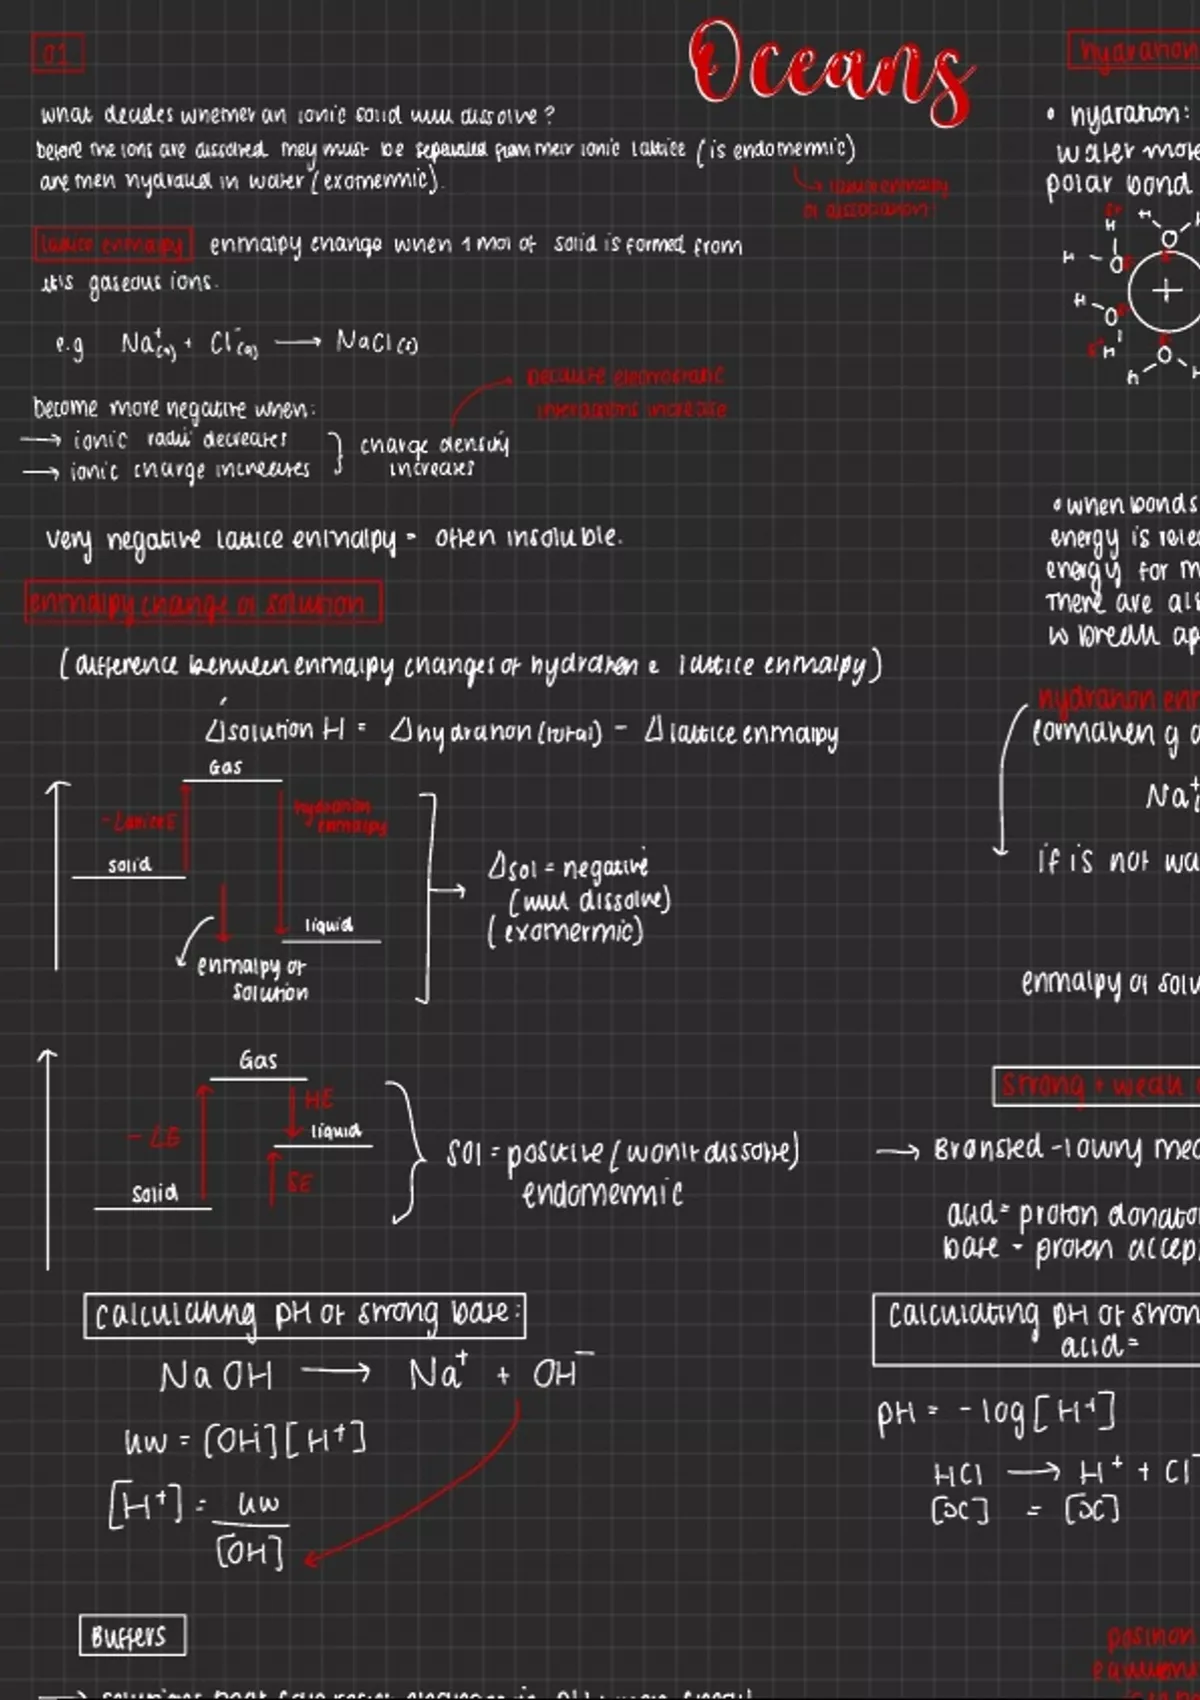 01
Oceans
what decides whether an ionic solid will dissolve?
before the ions are dissolved they must be separated from their ionic lattice (is endothermic)
are then hydrated in water (exothermic).
lattice enthalpy
of dissociation!
lattice enthalpy enthalpy change when 1 mol of solid is formed from
its gaseous ions.
e.g Na⁺(g) + Cl⁻(g) ⟶ NaCl(s)
because electrostatic
interactions increase
become more negative when:
→ ionic radii decreases
→ ionic charge increases
charge density
increases
very negative lattice enthalpy = often insoluble.
enthalpy change of solution
(difference between enthalpy changes of hydration & lattice enthalpy)
Δsolution H = Δhydration (total) - Δlattice enthalpy
Gas
- Lattice E
hydration
enthalpy
solid
liquid
enthalpy of
solution
Δsol = negative
(will dissolve)
(exothermic)
Gas
- LE
HE
liquid
SE
Solid
sol = positive (won't dissolve)
endothermic
calculating pH of strong base:
NaOH ⟶ Na⁺ + OH⁻
kw = [OH⁻][H⁺]
[H⁺] = kw
[OH]
Buffers
hydration
• hydration:
water mole
polar bond
δ+
H H
H O O
+
H O
δ+ H O
H H
• when bonds
energy is rele
energy for m
There are als
to break ap
hydration en
formation of a
Na⁺
if is not wa
enthalpy of solu
Strong + weak
→ Brønsted-lowry
acid = proton donato
base - proton accep
calculating pH of stron
acid =
pH = -log[H⁺]
HCl ⟶ H⁺ + Cl⁻
[x] = [x]
position